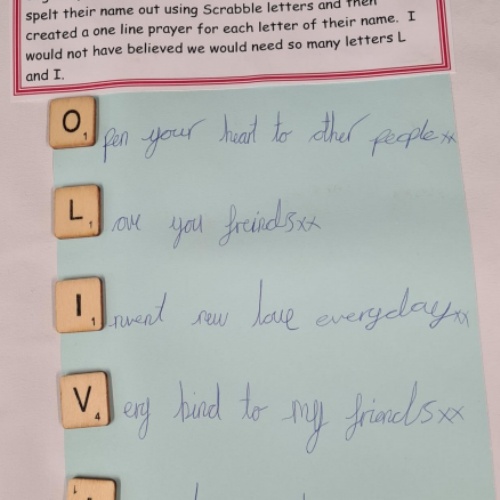 spelt their name out using Scrabble letters and then
created a one line prayer for each letter of their name. I
would not have believed we would need so many letters L
and I.
O1 pen your heart to other people xx
L1 ove you freinds xx
I1 nvent new love everyday xx
V4 ery kind to my friends xx